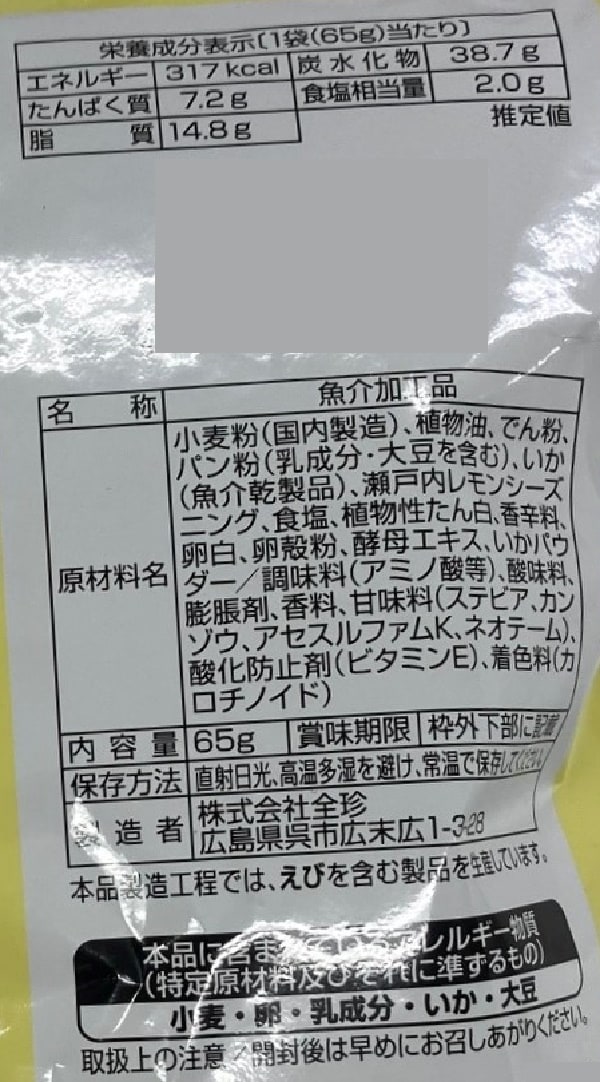 栄養成分表示〔1袋(65g)当たり〕
エネルギー 317kcal 炭水化物 38.7g
たんぱく質 7.2g 食塩相当量 2.0g
脂質 14.8g 推定値
名称 魚介加工品
原材料名 小麦粉(国内製造)、植物油、でん粉、
パン粉(乳成分・大豆を含む)、いか
(魚介乾製品)、瀬戸内レモンシーズ
ニング、食塩、植物性たん白、香辛料、
卵白、卵殻粉、酵母エキス、いかパウ
ダー/調味料(アミノ酸等)、酸味料、
膨脹剤、香料、甘味料(ステビア、カン
ゾウ、アセスルファムK、ネオテーム)、
酸化防止剤(ビタミンE)、着色料(カ
ロチノイド)
内容量 65g 賞味期限 枠外下部に記載
保存方法 直射日光、高温多湿を避け、常温で保存してください
製造者 株式会社全珍
広島県呉市広末広1-3-28
本品製造工程では、えびを含む製品を生産しています。
本品に含まれているアレルギー物質
(特定原材料及びそれに準ずるもの)
小麦・卵・乳成分・いか・大豆
取扱上の注意/開封後は早めにお召しあがりください。